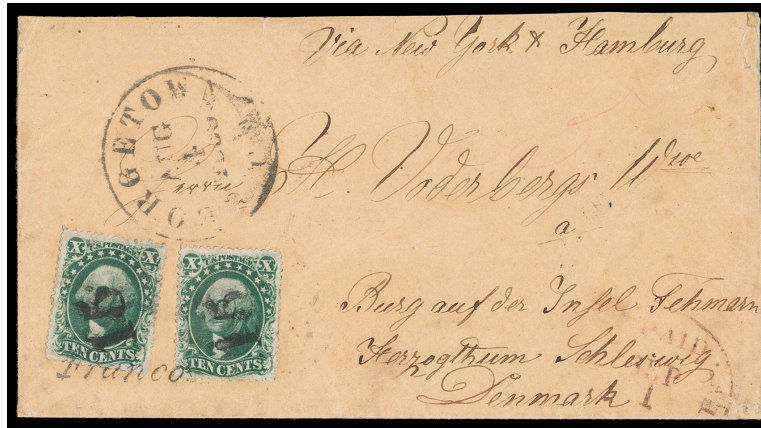 Via New York & Hamburg
GEORGETOWN
AUG
4
Herrn H. Voderbergs Wwe
a
Burg auf der Insel Fehmarn
Herzogthum Schleswig
Denmark
X U.S. POSTAGE X
15
TEN CENTS
X U.S. POSTAGE X
15
TEN CENTS
Franco
PAID
1